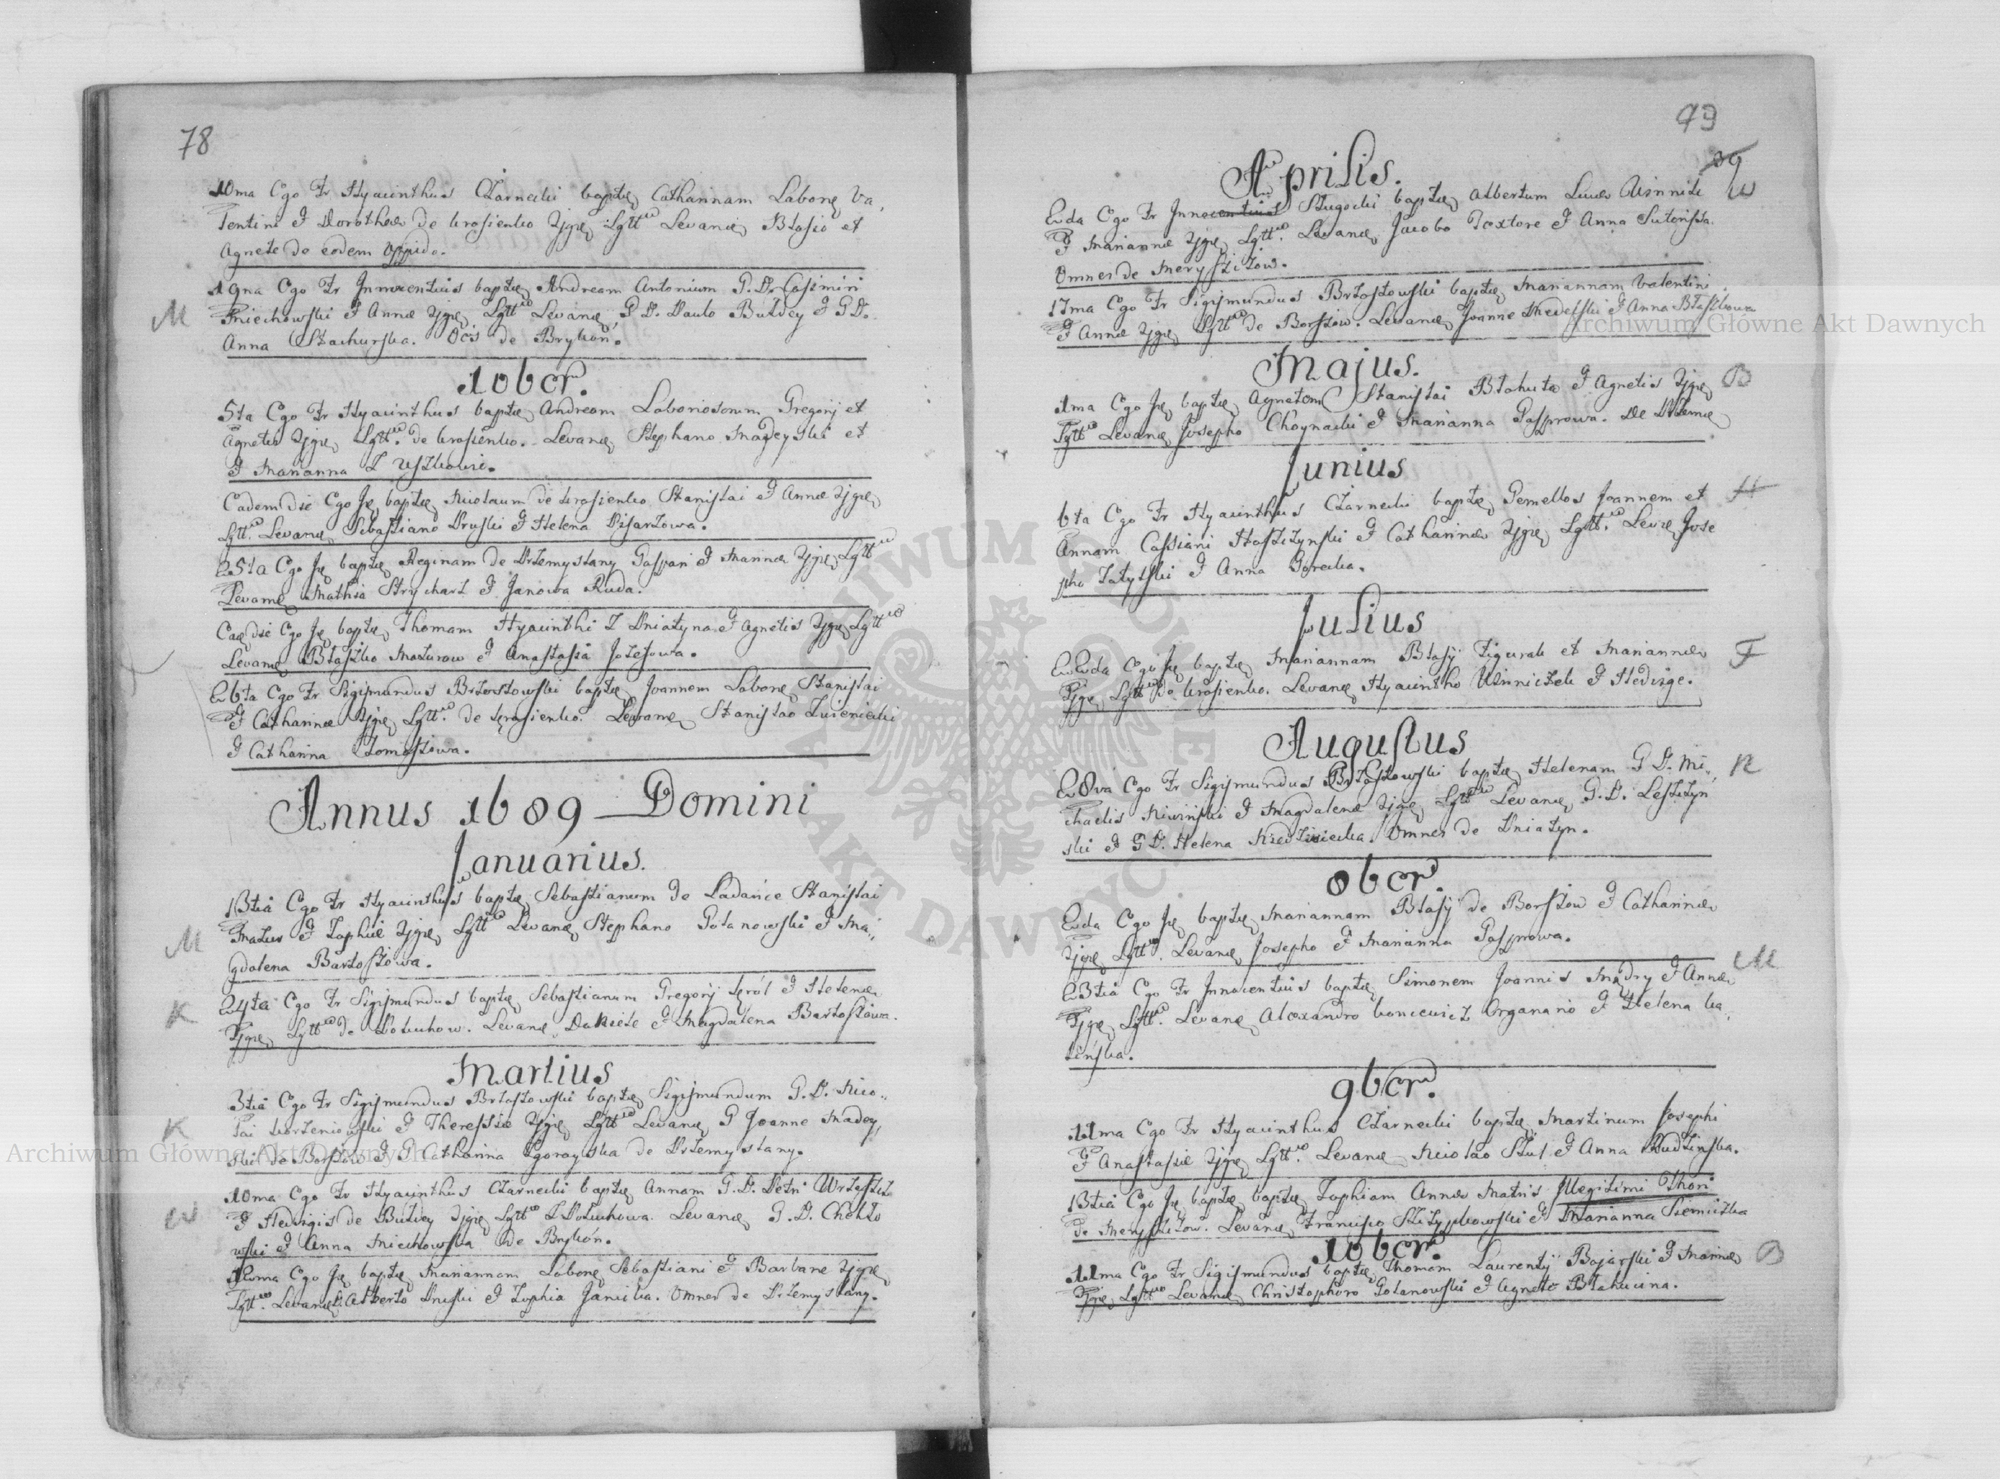 78
10ma Ego Fr Hyacinthus Czarnecki baptẓ Catharinam Laborẓ Va,
lentini et Dorotheæ de Krosienko ljgrẓ Lgtt. Levanẓ Blasio et
Agnete de eodem oppido.
19na Ego Fr Innocentius baptẓ Andream Antonium G. D. Casimiri
M
Miechowski et Annæ ljgrẓ Lgtt Levanẓ G D. Paulo Buldey et G D.
Anna Stachurska. Ocis de Brykoń.
10bcr.
5ta Ego Fr Hyacinthus baptẓ Andream Laboriosorum Gregorij et
Agnetis ljgrẓ Lgtt. de Krosienko. Levanẓ Stephano Madeyski et
et Marianna
Eadem die Ego Jẓ baptẓ Nicolaum de Krosienko Stanislai et Annæ ljgrẓ
Lgtt. Levanẓ Sebastiano Druski et Helena Pisarzowa.
25ta Ego Jẓ baptẓ Reginam de Przemyslany Gaspari et Mannæ ljgrẓ Lgtt
Levanẓ Mathia Strycharz et Janowa Ruda.
Eaẓ die Ego Jẓ baptẓ Thomam Hyacinthi z Dniatyna et Agnetis ljgrẓ Lgtt
Levanẓ Błaszko Mazurow et Anastasia Jozefowa.
26ta Ego Fr Sigismundus Brzostowski baptẓ Joannem Laborẓ Stanislai
et Catharinæ ljgrẓ Lgtt. de Krosienko. Levanẓ Stanislao
et Catharina Tomaszowa.
Annus 1689 Domini
Januarius.
13tia Ego Fr Hyacinthus baptẓ Sebastianum de Ladańce Stanislai
M
Mazur et Zophiæ ljgrẓ Lgtt Levanẓ Stephano Golanowski et Ma,,
gdalena Bartoszowa.
K
24ta Ego Fr Sigismundus baptẓ Sebastianum Gregorij Król et Helenæ
ljgrẓ Lgtt de Poluchow. Levanẓ Daniele et Magdalena Bartoszowa.
Martius
3tia Ego Fr Sigismundus Brzostowski baptẓ Sigismundum G. D. Nico,,
K
lai Korzeniowski et Theressiæ ljgrẓ Lgtt Levanẓ G Joanne Madey,
ski de Borszow et G Catharina Zgorayska de Przemyslany.
10ma Ego Fr Hyacinthus Czarnecki baptẓ Annam G. D. Petri
W
et Hedvigis de Buldey ljgrẓ Lgtt z Poluchowa. Levanẓ G. D. Chohło
wski et Anna Miechowska de Brykon.
Ego Jẓ baptẓ Mariannam Laborẓ Sebastiani et Barbaræ ljgrẓ
Lgtt. Levanẓ Alberto Druski et Zophia Janicka. Omnes de Przemyslany.
49
39
Aprilis.
W
2da Ego Fr Innocentius Długocki baptẓ Albertum Lucæ Winnik
et Mariannæ ljgrẓ Lgtt. Levanẓ Jacobo Textore et Anna Sutorista.
Omnes de Meryszczow.
17ma Ego Fr Sigismundus Brzostowski baptẓ Mariannam Valentini
et Annæ ljgrẓ Lgtt de Borszow. Levanẓ Joanne et Anna
Majus.
B
1ma Ego Jẓ baptẓ Agnetem Stanislai Błahuta et Agnetis ljgrẓ
Lgtt Levanẓ Josepho Choynacki et Marianna Gasprowa. De
Junius
H
6ta Ego Fr Hyacinthus Czarnecki baptẓ Gemellos Joannem et
Annam Cassiani Haszczynski et Catharinæ ljgrẓ Lgtt. Levẓ Jose
pho Zatylski et Anna Gorecka.
Julius
F
22da Ego Jẓ baptẓ Mariannam Blasij Figurak et Mariannæ
ljgrẓ Lgtt de Krosienko. Levanẓ Hyacintho Winniczek et Hedvige.
Augustus
N
28va Ego Fr Sigismundus Brzostowski baptẓ Helenam G D. Mi,,
chaelis Niwiński et Magdalenæ ljgrẓ Lgtt Levanẓ G. D. Leszczyn
ski et G D. Helena Niedzwiecka Omnes de Dniatyn.
8bcr.
2da Ego Jẓ baptẓ Mariannam Blasij de Borszow et Catharinæ
ljgrẓ Lgtt. Levanẓ Josepho et Marianna Gasprowa.
M
23tia Ego Fr Innocentius baptẓ Simonem Joannis Mądry et Annæ
ljgrẓ Lgtt. Levanẓ Alexandro Koncewicz Organario et Helena Ka,
linska.
9bcr.
11ma Ego Fr Hyacinthus Czarnecki baptẓ Martinum Josephi
et Anastasiæ ljgrẓ Lgtt. Levanẓ Nicolao Szul et Anna Rudzinska.
13tia Ego Jẓ baptẓ baptẓ Zophiam Annæ Matris Illegitimi Thori
de Meryszczow. Levanẓ Francisco Szczypkowski et Marianna Siemiczka
10bcr.
B
11ma Ego Fr Sigismundus baptẓ Thomam Laurentij Bojarski et Mannæ
ljgrẓ Lgtt Levanẓ Christophoro Golanowski et Agnete Błahucina.
Archiwum Główne Akt Dawnych
Archiwum Główne Akt Dawnych
ARCHIWUM GŁÓWNE
AKT DAWNYCH